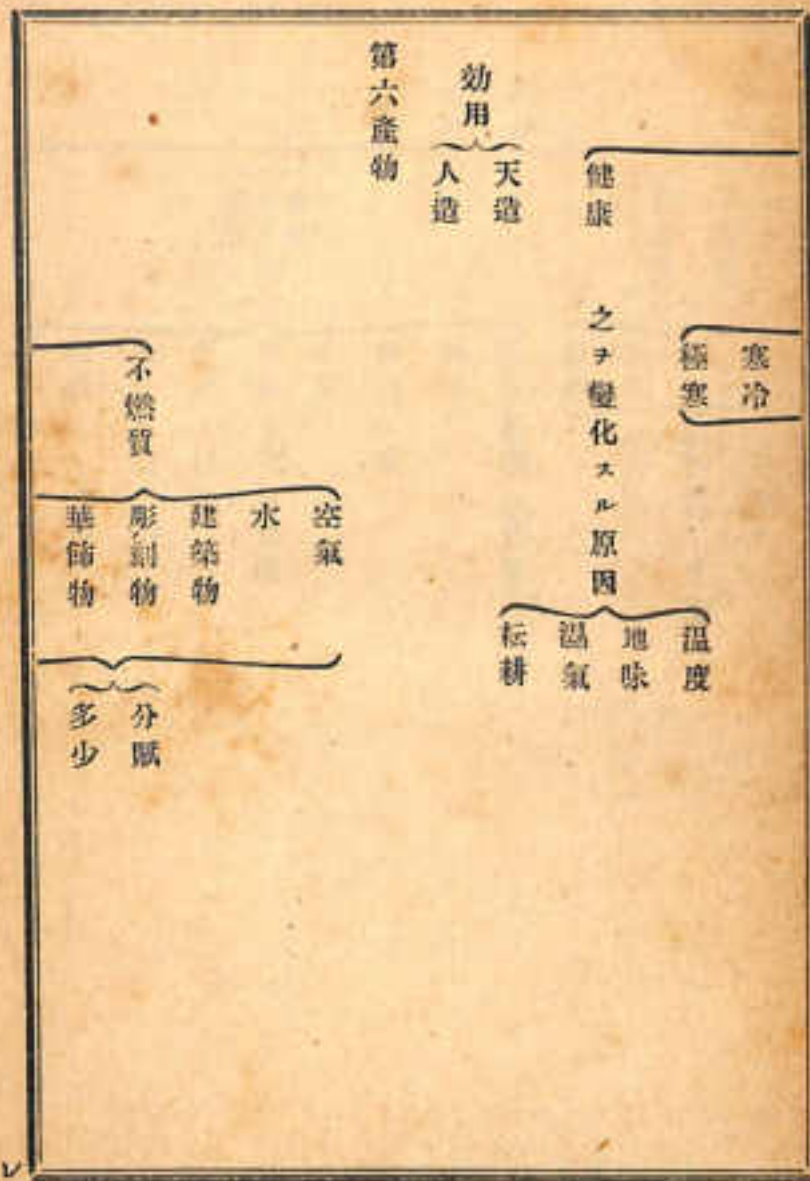 寒冷
極寒
健康
之ヲ變化スル原因
溫度
地味
濕氣
耘耕
効用
天造
人造
第六產物
不燃質
空氣
水
建築物
彫刻物
華飾物
分賦
多少